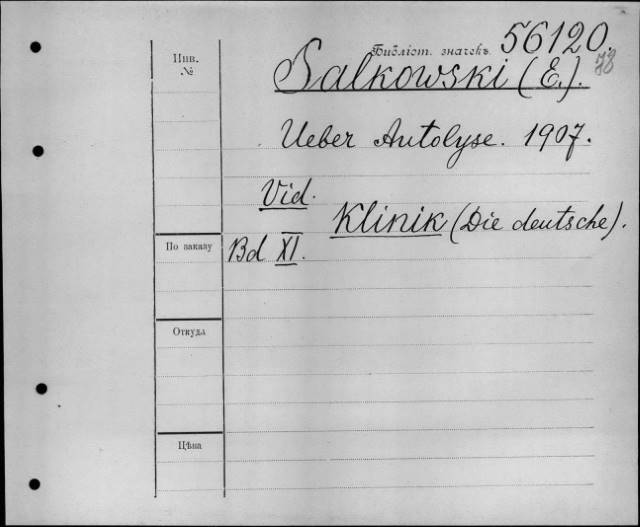 Инв. №
Библіот. значекъ 56120.
78
Salkowski (E.).
Ueber Autolyse. 1907.
Vid.
Klinik (Die deutsche).
По заказу
Bd XI.
Откуда
Цѣна